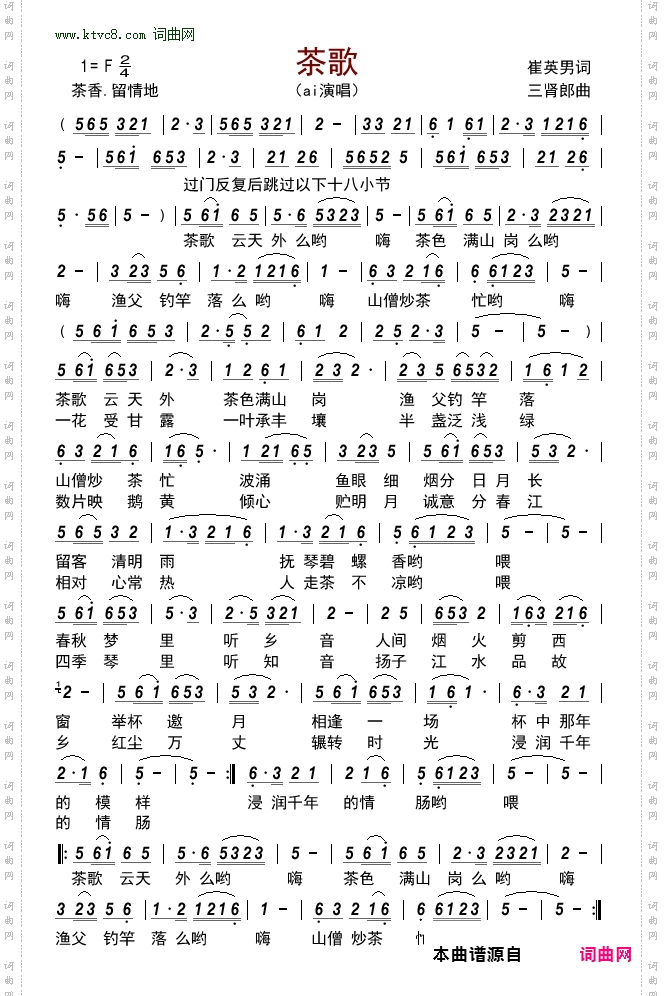 www.ktvc8.com 词曲网
茶歌
1= F 2/4
崔英男词
茶香.留情地
（ai演唱）
三肾郎曲
( 565 321 | 2·3 | 565 321 | 2 - | 33 21 | 6 1 61 | 2·3 1216 |
5 - | 561 653 | 2·3 | 21 26 | 5652 5 | 561 653 | 21 26 |
过门反复后跳过以下十八小节
5· 56 | 5 - ) | 5 61 6 5 | 5·6 5323 | 2 - | 5 61 6 5 | 2·3 2321 |
茶歌 云天 外 么哟 嗨 茶色 满山 岗 么哟
2 - | 3 23 5 6 | 1·2 1216 | 1 - | 6 3 2 16 | 6 6123 | 5 - |
嗨 渔父 钓竿 落 么 哟 嗨 山僧炒茶 忙哟 嗨
( 5 61 6 53 | 2·5 5 2 | 61 2 | 25 2·3 | 5 - | 5 - ) |
5 61 653 | 2·3 | 1 2 61 | 2 3 2· | 2·3 5 | 5 61 6532 | 1 61 2 |
茶歌 云 天 外 茶色满山 岗 渔 父钓 竿 落
一花 受 甘 露 一叶承丰 壤 半 盏泛 浅 绿
6 3 21 6 | 16 5· | 1 21 65 | 3 23 5 | 5 61 653 | 5 6 1 2 |
山僧炒 茶 忙 波涌 鱼眼 细 烟分 日 月 长
数片映 鹅 黄 倾心 贮明 月 诚意 分 春 江
5 65 3 2 | 1·3 21 6 | 1·3 21 6 | 5 61 2 3 | 5 - |
留客 清明 雨 抚 琴碧 螺 香哟 喂
相对 心常 热 人 走茶 不 凉哟 喂
5 61 653 | 5 3 2 | 2·5 321 | 2 - | 2 5 | 653 2 | 163 216 |
春秋 梦 里 听 乡 音 人间 烟 火 剪 西
四季 琴 里 听 知 音 扬子 江 水 品 故
12 - | 5 61 653 | 53 2· | 5 61 653 | 1 61· | 6·3 2 1 |
窗 举杯 邀 月 相逢 一 场 杯 中 那年
乡 红尘 万 丈 辗转 时 光 浸 润 千年
2·1 6 | 5 - | 5 - :‖ 6·3 2 1 | 2 1 6 | 5 6123 | 5 - |
的 模 样 浸 润千年 的情 肠哟 喂
的 情 肠
‖: 5 61 6 5 | 5·6 5323 | 5 - | 5 61 6 5 | 2·3 2321 | 2 - |
茶歌 云天 外 么哟 嗨 茶色 满山 岗 么 哟 嗨
3 23 5 6 | 1·2 1216 | 1 - | 6 3 2 16 | 6 6123 | 5 - | 5 - :‖
渔父 钓竿 落 么哟 嗨 山僧 炒茶
本曲谱源自 词曲网